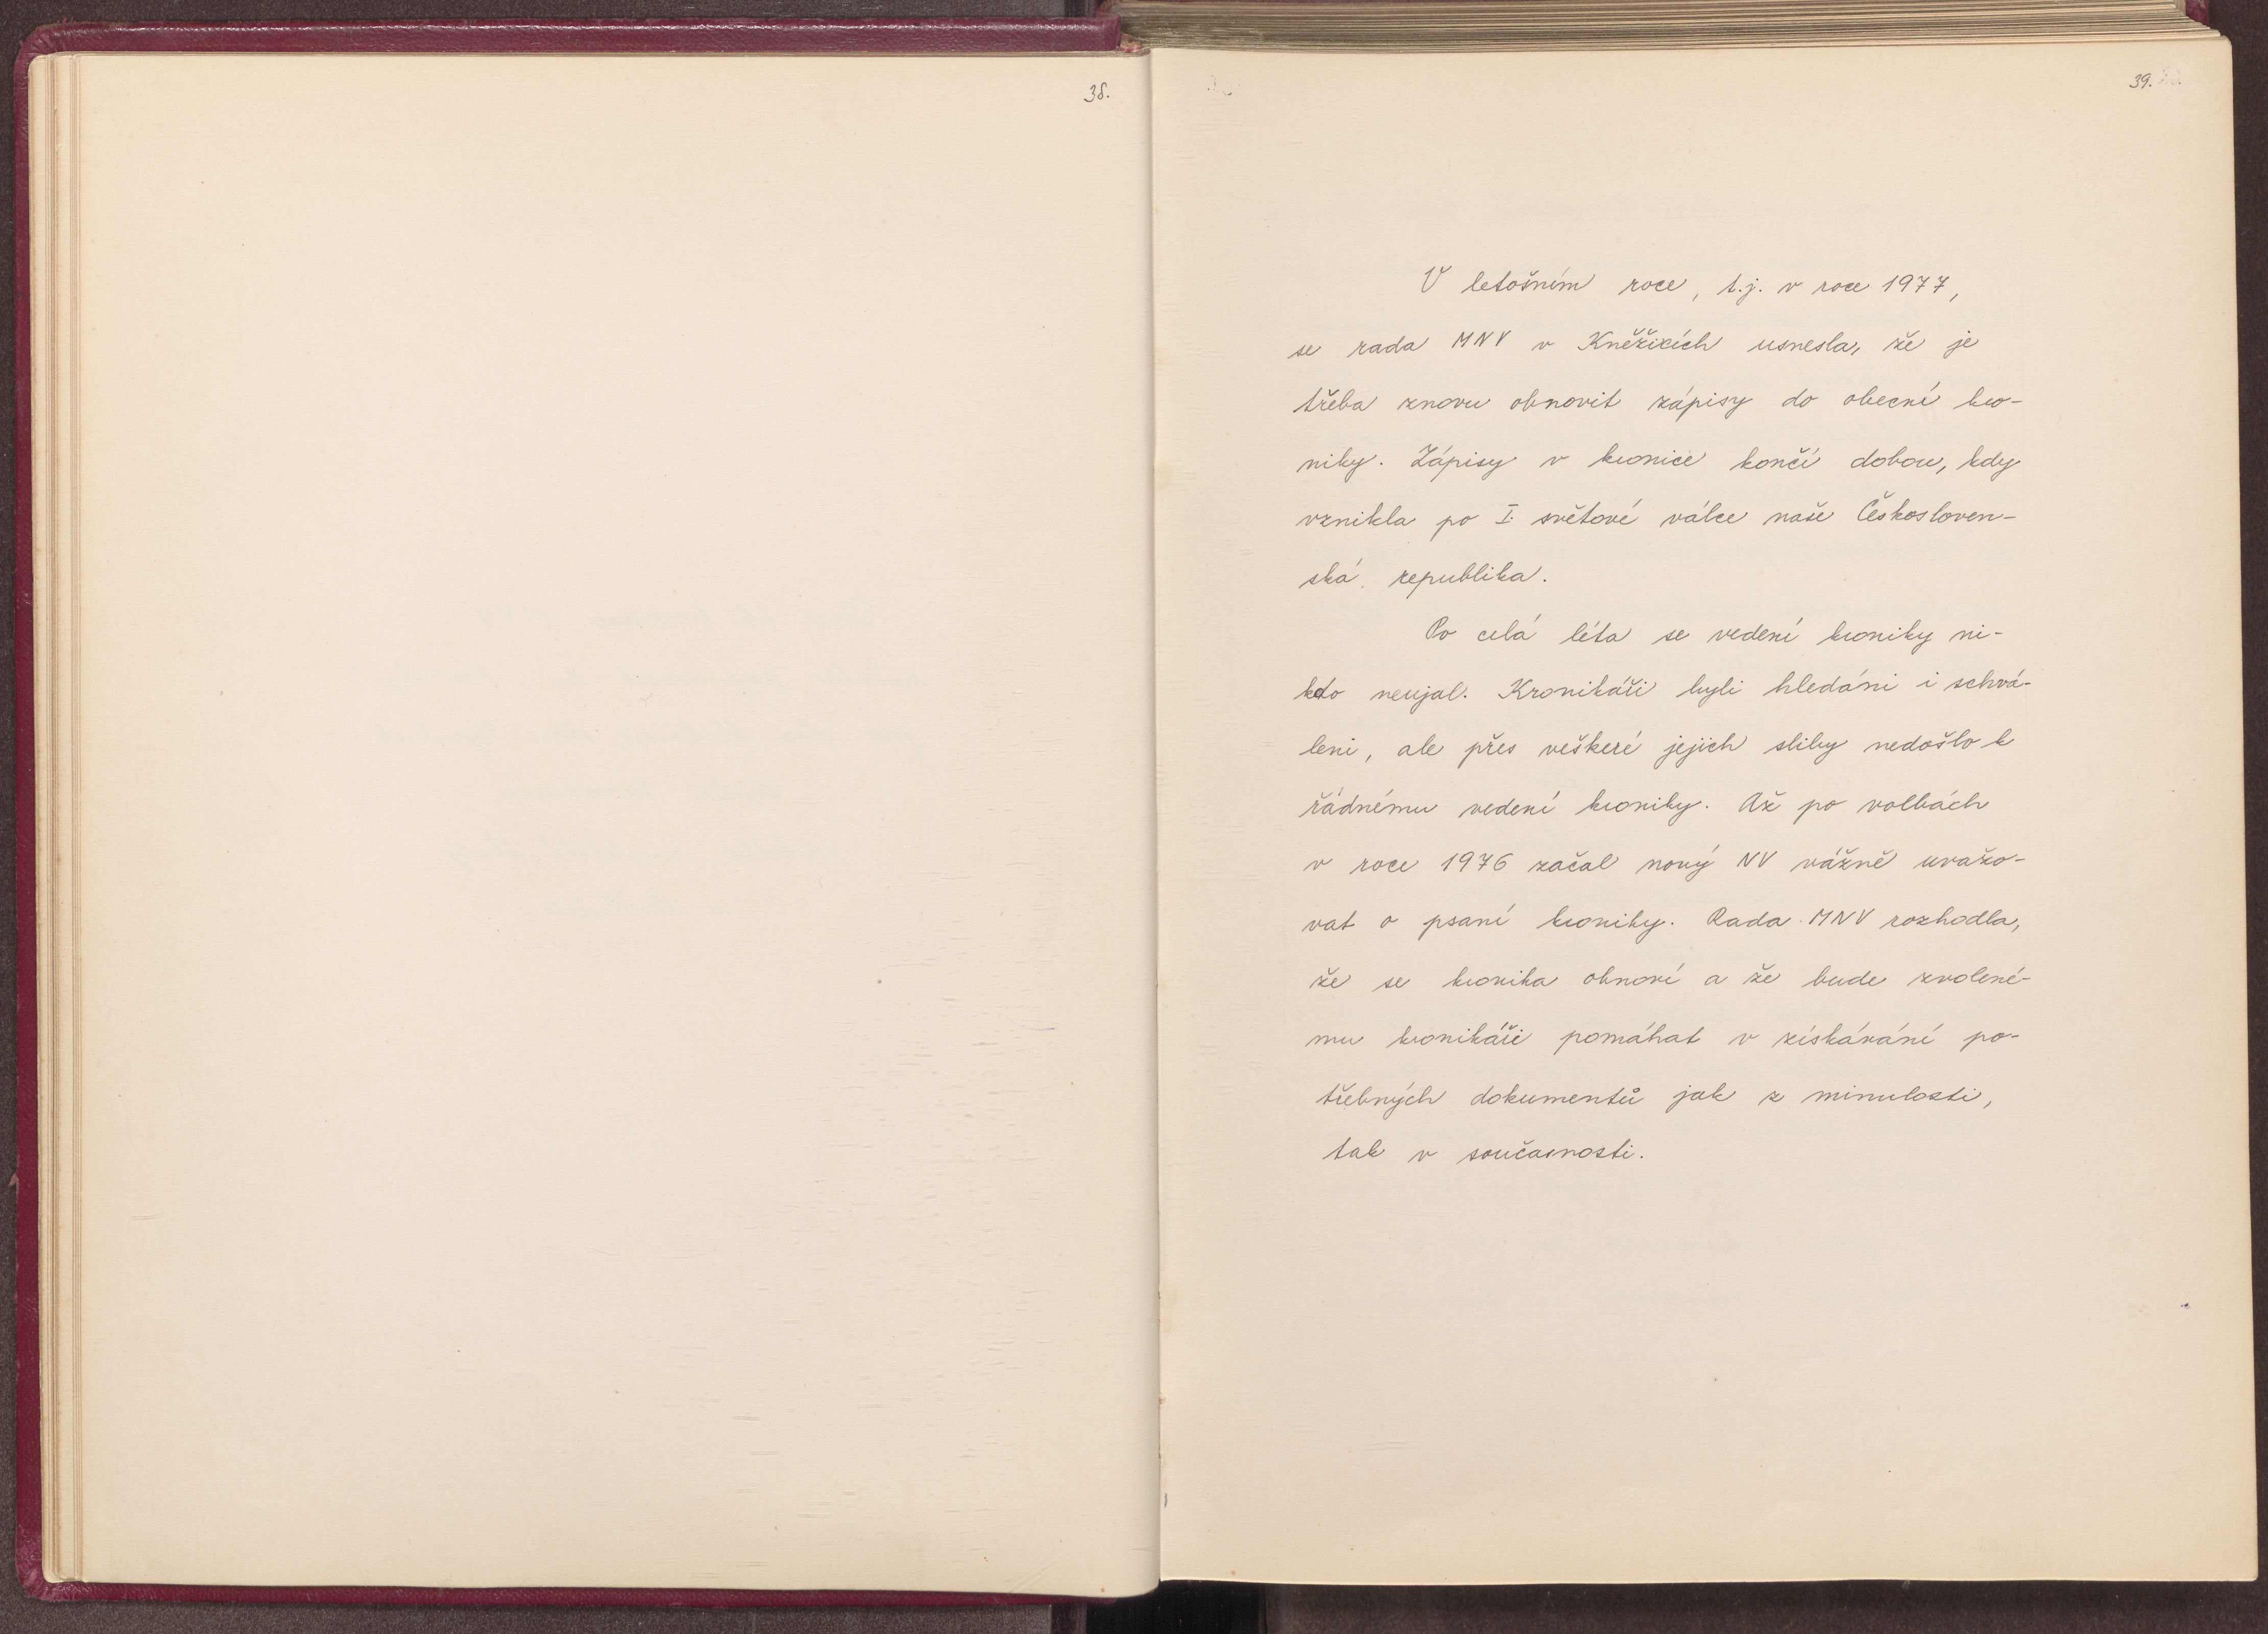 38.
39.
V letošním roce, t.j. v roce 1977,
se rada MNV v Kněžicích usnesla, že je
třeba znovu obnovit zápisy do obecní kro-
niky. Zápisy v kronice končí dobou, kdy
vznikla po I. světové válce naše Českosloven-
ská republika.
Po celá léta se vedení kroniky ni-
kdo neujal. Kronikáři byli hledáni i schvá-
leni, ale přes veškeré jejich sliby nedošlo k
řádnému vedení kroniky. Až po volbách
v roce 1976 začal nový NV vážně uvažo-
vat o psaní kroniky. Rada MNV rozhodla,
že se kronika obnoví a že bude zvolené-
mu kronikáři pomáhat v získávání po-
třebných dokumentů jak z minulosti,
tak v současnosti.